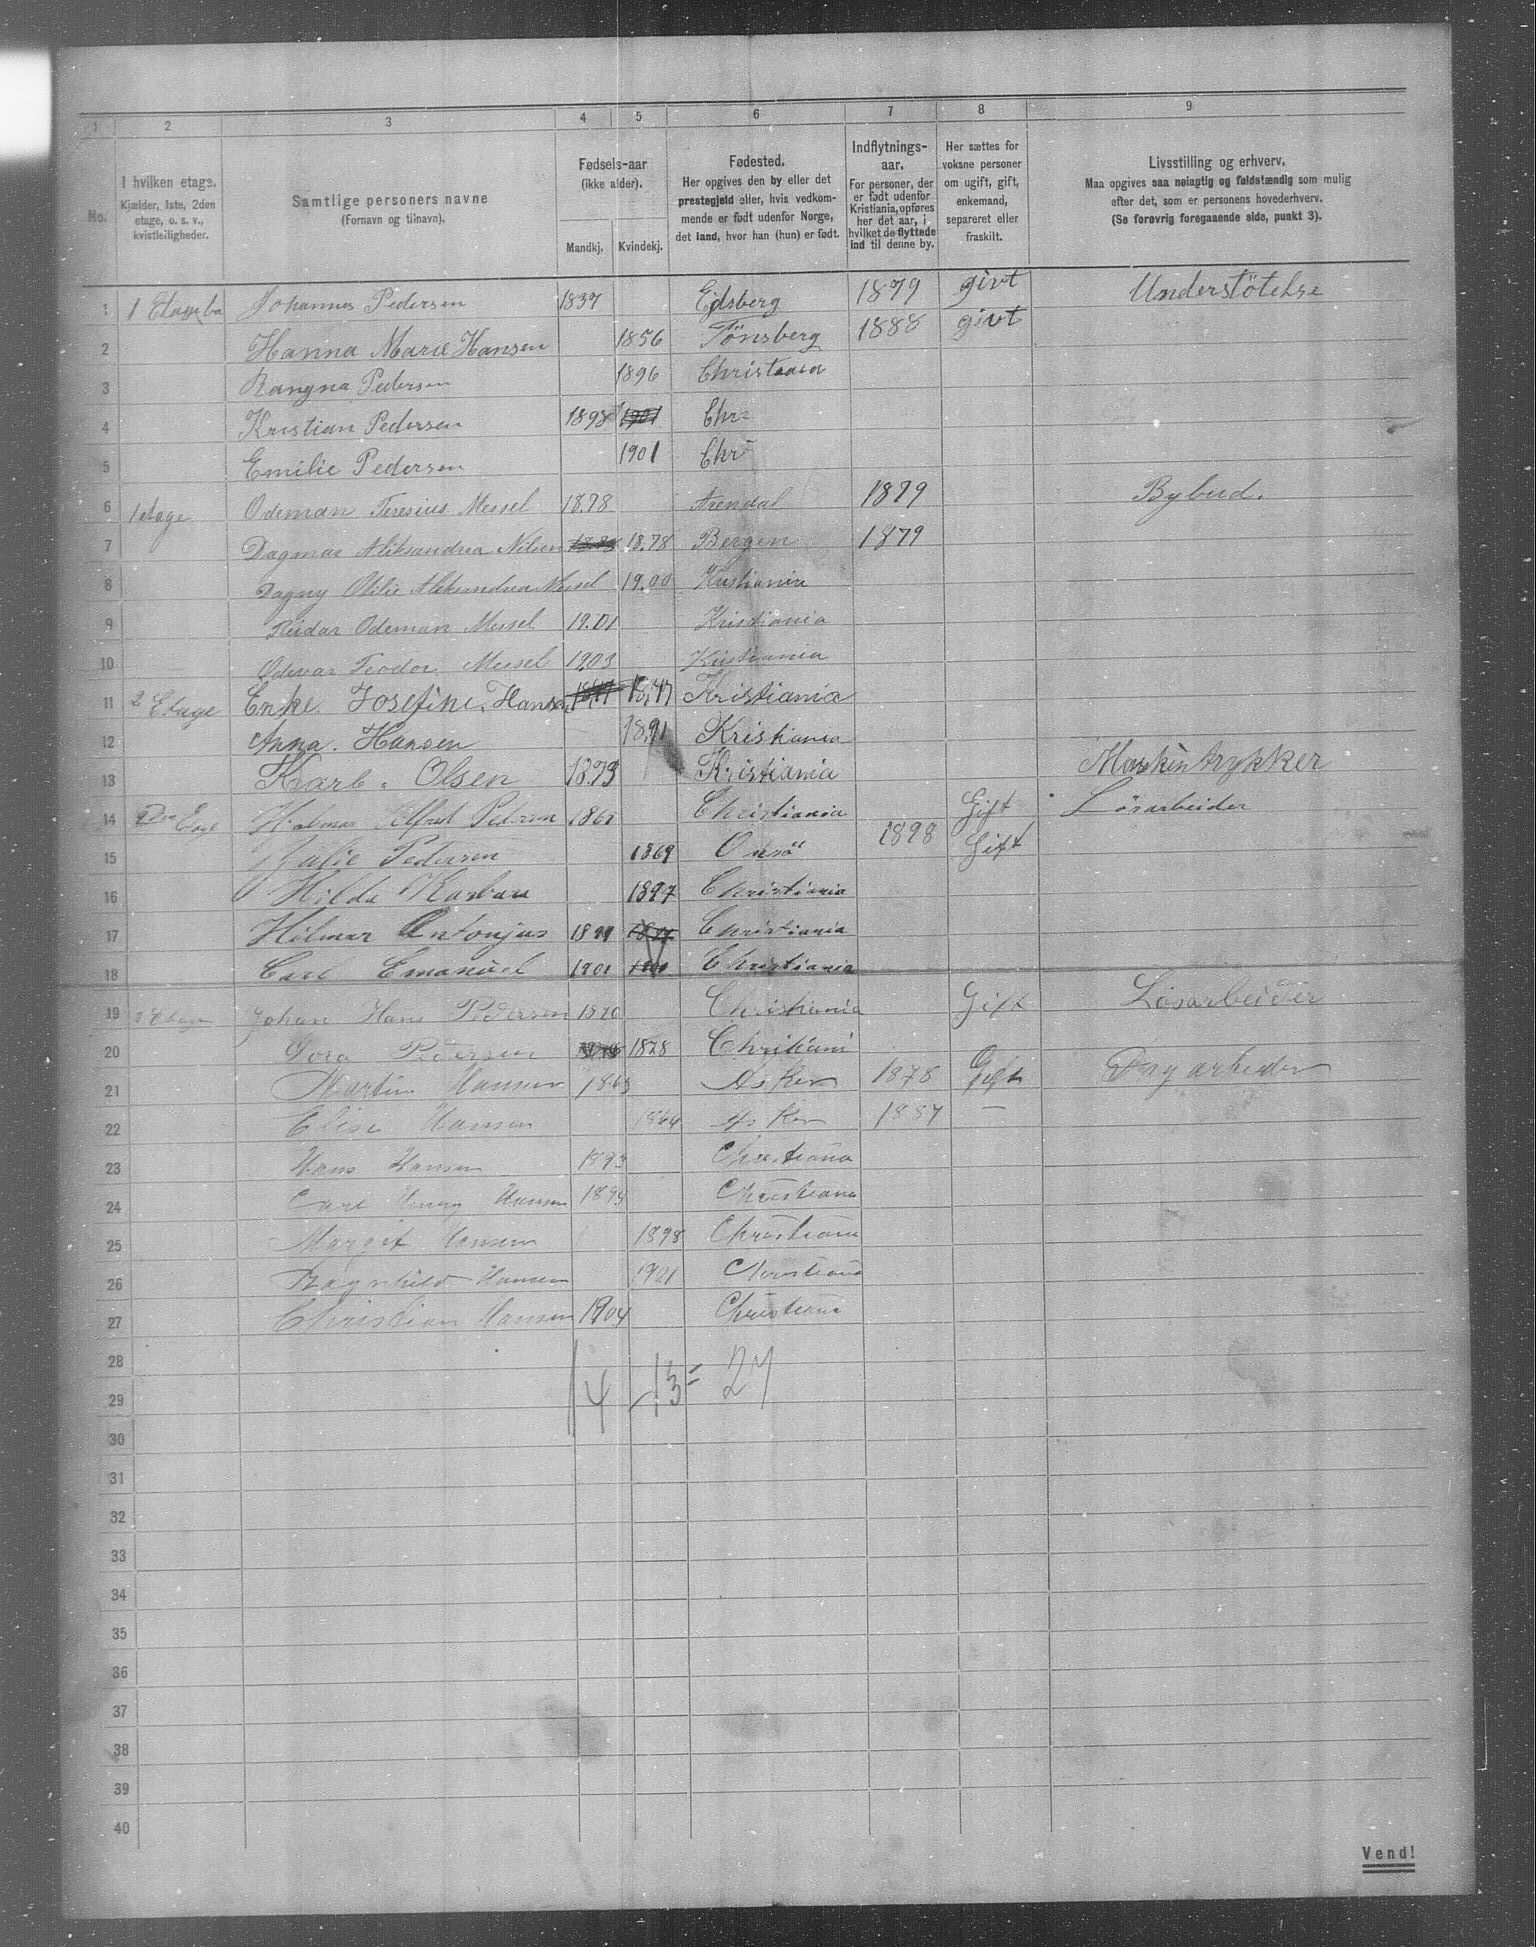 1 2 3 4 5 6 7 8 9
No.
I hvilken etage.
Kjælder, 1ste, 2den
etage, o. s. v.,
kvistleiligheder.
Samtlige personers navne
(Fornavn og tilnavn).
Fødsels-aar
(ikke alder).
Mandkj. Kvindekj.
Fødested.
Her opgives den by eller det
prestegjeld eller, hvis vedkom-
mende er født udenfor Norge,
det land, hvor han (hun) er født.
Indflytnings-
aar.
For personer, der
er født udenfor
Kristiania, opføres
her det aar, i
hvilket de flyttede
ind til denne by.
Her sættes for
voksne personer
om ugift, gift,
enkemand,
separeret eller
fraskilt.
Livsstilling og erhverv.
Maa opgives saa nøiagtig og fuldstændig som mulig
efter det, som er personens hovederhverv.
(Se forøvrig foregaaende side, punkt 3).
1 1 Etage Johannes Pedersen 1837 Edsberg 1879 givt Understötelse
2 Hanna Marie Hansen 1856 Tönsberg 1888 givt
3 Rangna Pedersen 1896
4 Kristian Pedersen 1898 1901 Chr
5 Emilie Pedersen 1901 Chr
6 1 etage Odeman Teresius Messel 18.78 Arendal 1879 Bybud.
7 Dagmar Aleksandrea Nilsen 18.78 Bergen 1879
8 Dagny Otilie Aleksandrea Messel 19.00 Kristiania
9 Reidar Odeman Messel 19.01 Kristiania
10 Odevar Teodor Messel 1903 Kristiania
11 2 Etage Enke. Josefine. Hansen 18.47 Kristiania
12 Anna. Hansen 18.91 Kristiania
13 Karl. Olsen 18.73 Kristiania Maskintrykker
14 Hialmar Alfred Pedersen Christiania Gift Lösarbeider
15 Pedersen 1869 Onsö 1898 Gift
16 Hilda 1897 Christiania
17 Hilmar Antonjus 1899 Christiania
18 Carl Emanuel 1901 Christiania
19 Etage Johan Hans Pedersen 1870 Christiania Gift Lösarbeider
20 Dora Pedersen 1878
21 Martin Hansen 1863 Asker 1878 Gift Dagarbeider
22 Elise Hansen 1864 Asker 1887 —
23 Hans Hansen 1893 Christiana
24 Carl Henry Hansen 1894 Christiana
25 Margit Hansen 1898 Christiana
26 Ragnhild Hansen 1901 Christiana
27 Christian Hansen 1904 Christiana
28
29 14 13 = 27
30
31
32
33
34
35
36
37
38
39
40
Vend!